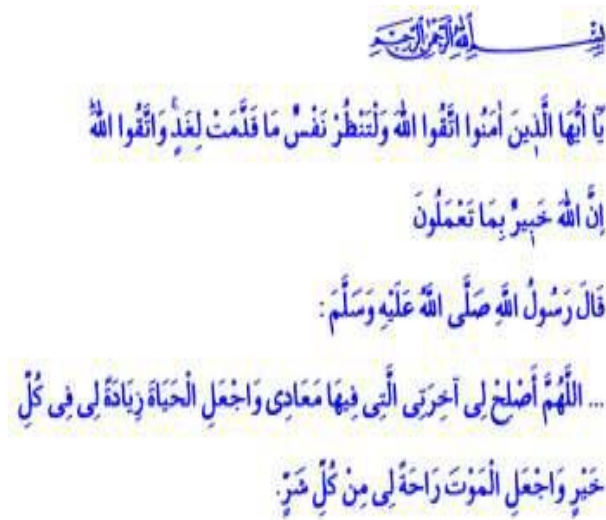 بِسْمِ اللّٰهِ الرَّحْمٰنِ الرَّحِيمِ
يَٓا اَيُّهَا الَّذ۪ينَ اٰمَنُوا اتَّقُوا اللّٰهَ وَلْتَنْظُرْ نَفْسٌ مَا قَدَّمَتْ لِغَدٍۚ وَاتَّقُوا اللّٰهَۜ
اِنَّ اللّٰهَ خَب۪يرٌ بِمَا تَعْمَلُونَ
قَالَ رَسُولُ اللَّهِ صَلَّى اللَّهُ عَلَيْهِ وَسَلَّمَ :
... اللَّهُمَّ أَصْلِحْ لِى آخِرَتِى الَّتِى فِيهَا مَعَادِى وَاجْعَلِ الْحَيَاةَ زِيَادَةً لِى فِى كُلِّ
خَيْرٍ وَاجْعَلِ الْمَوْتَ رَاحَةً لِى مِنْ كُلِّ شَرٍّ.